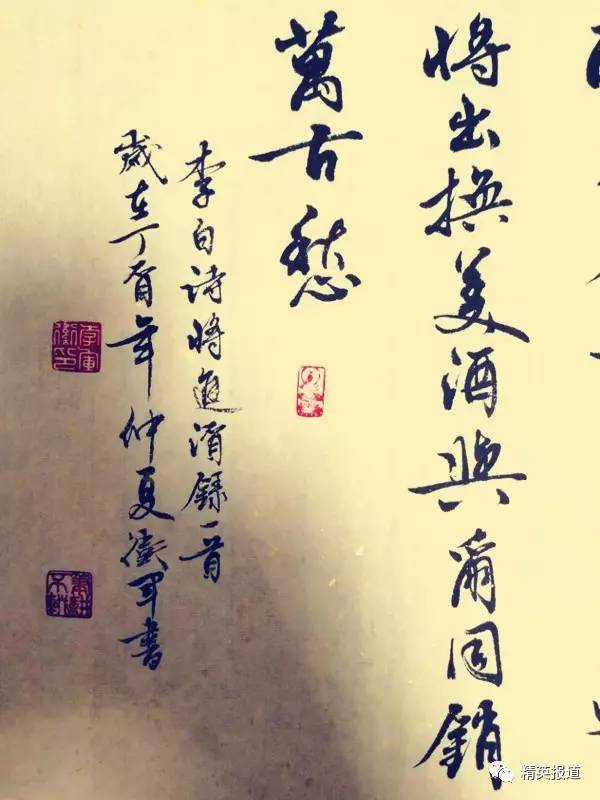 将出换美酒與爾同銷
萬古愁
李白诗将進酒錄一首
歲在丁酉年仲夏衛軍書
精英报道